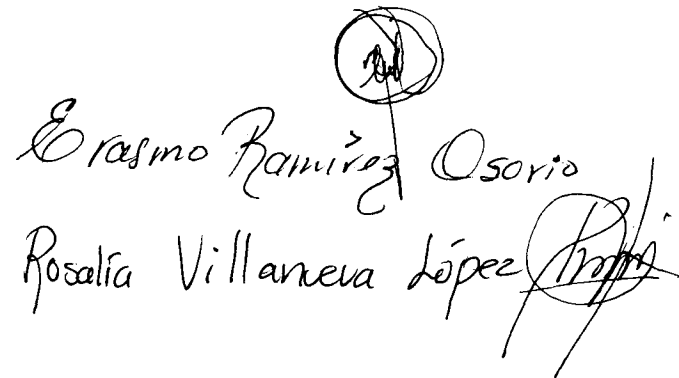 Erasmo Ramírez Osorio
Rosalía Villanueva López